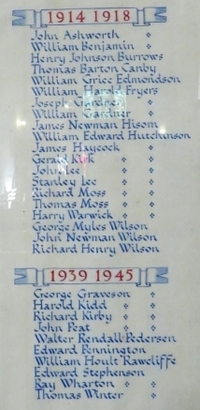 1914 1918
John Ashworth
William Benjamin
Henry Johnson Burrows
Thomas Barton Canby
William Grice Edmondson
William Harold Fryers
Joseph Gardner
William Gardner
James Newman Hisom
William Edward Hutchinson
James Haycock
Gerald Kirk
John Lee
Stanley Lee
Richard Moss
Thomas Moss
Harry Warwick
George Myles Wilson
John Newman Wilson
Richard Henry Wilson
1939 1945
George Graveson
Harold Kidd
Richard Kirby
John Peat
Walter Rendall Pedersen
Edward Pennington
William Hoult Rawcliffe
Edward Stephenson
Ray Wharton
Thomas Winter